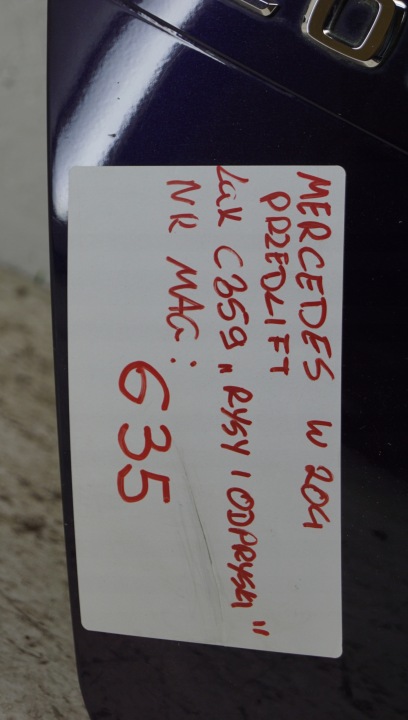 MERCEDES W204
PRZEDLIFT
LAK C359 „RYSY I ODPRYSKI"
NR MAG:
635